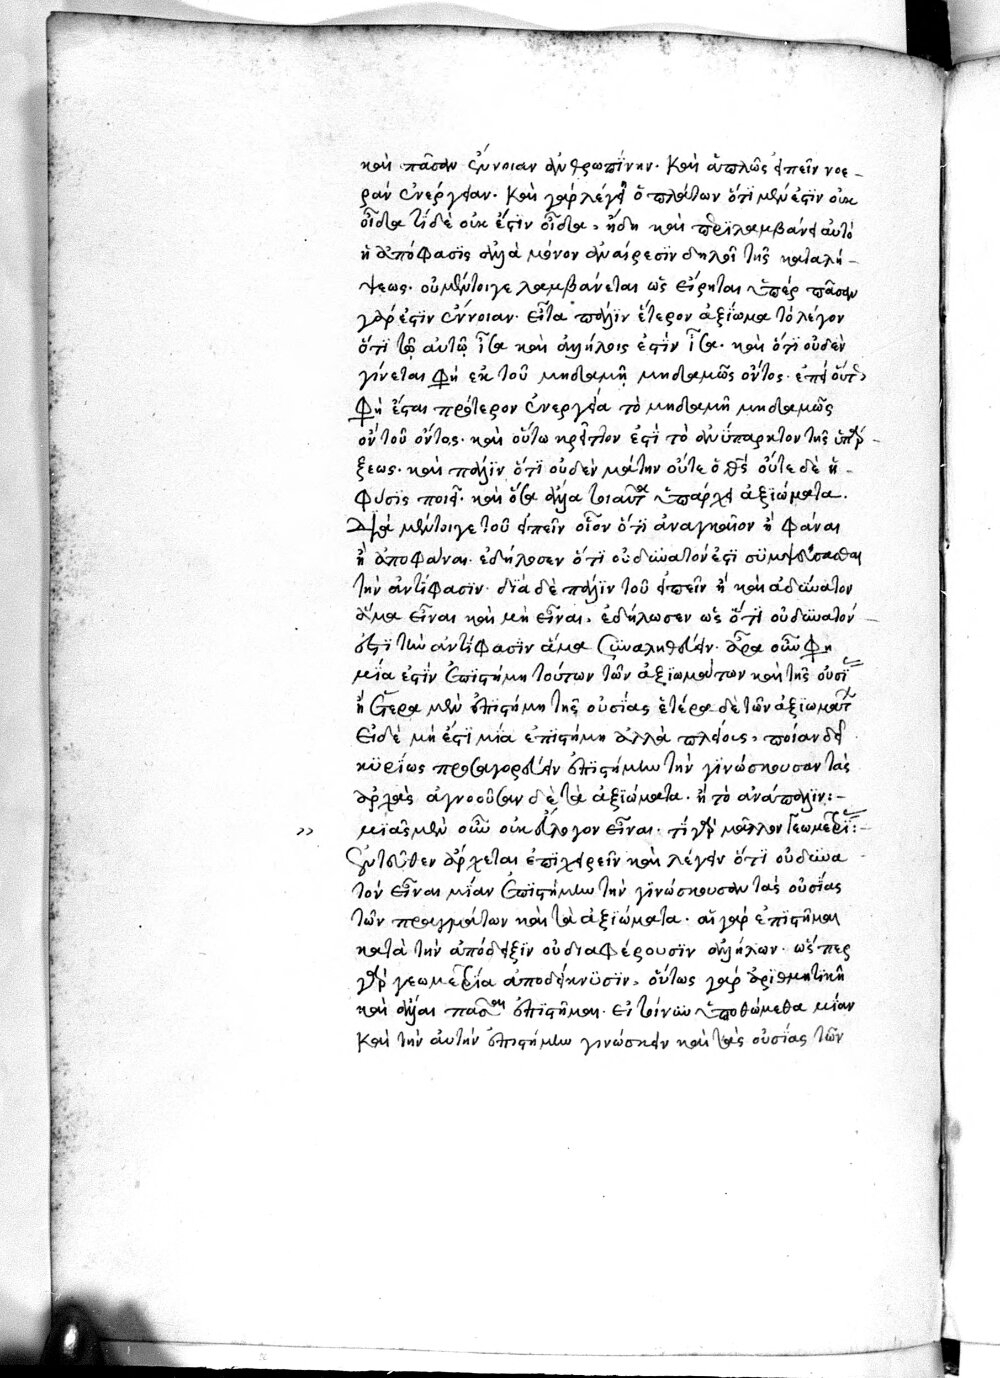 καὶ πᾶσαν ἔννοιαν ἀνθρωπίνην. Καὶ ἁπλῶς εἰπεῖν νοε-
ρὰν ἐνέργειαν. Καὶ γὰρ λέγει ὁ πλάτων ὅτι μὲν ἔστιν οὐκ
οἶδα τί δὲ οὐκ ἔστιν οἶδα, ἤδη καὶ περιλαμβάνει αὐτὸ
ἡ ἀπόφασις ἀλλὰ μόνον ἀναίρεσιν δηλοῖ τῆς καταλή-
ψεως. οὐ μέντοιγε λαμβάνεται ὡς εἴρηται ὑπὲρ πᾶσαν
γάρ ἐστιν ἔννοιαν. Εἶτα πάλιν ἕτερον ἀξίωμα τὸ λέγον
ὅτι τὰ τῷ αὐτῷ ἴσα καὶ ἀλλήλοις ἐστὶν ἴσα. καὶ ὅτι οὐδὲν
γίνεται φησὶ ἐκ τοῦ μηδαμῆ μηδαμῶς ὄντος. ἐπεὶ οὕτω
φησὶ ἔσται πρότερον ἐνεργείᾳ τὸ μηδαμῆ μηδαμῶς
ὂν τοῦ ὄντος. καὶ οὕτω κρεῖττον ἐστὶ τὸ ἀνύπαρκτον τῆς ὑπάρ-
ξεως. καὶ πάλιν ὅτι οὐδὲν μάτην οὔτε ὁ θεὸς οὔτε δὲ ἡ
φύσις ποιεῖ. καὶ ὅσα ἄλλα τοιαῦτα ὑπάρχει ἀξιώματα.
Διὰ μέντοιγε τοῦ εἰπεῖν οἷον ὅτι ἀναγκαῖον ἢ φάναι
ἢ ἀποφάναι. ἐδήλωσεν ὅτι οὐ δυνατόν ἐστι συμψεύσασθαι
τὴν ἀντίφασιν. διὰ δὲ πάλιν τοῦ εἰπεῖν ἢ καὶ ἀδύνατον
ἅμα εἶναι καὶ μὴ εἶναι, ἐδήλωσεν ὡς ὅτι οὐ δυνατόν
ἐστι τὴν ἀντίφασιν ἅμα συναληθεύειν. ἆρα οὖν φησὶ
μία ἐστὶν ἐπιστήμη τούτων τῶν ἀξιωμάτων καὶ τῆς οὐσίας
ἢ ἑτέρα μὲν ἐπιστήμη τῆς οὐσίας ἑτέρα δὲ τῶν ἀξιωμάτων
Εἰ δὲ μή ἐστι μία ἐπιστήμη ἀλλὰ πλείους, ποίαν δεῖ
κυρίως προσαγορεύειν ἐπιστήμην τὴν γινώσκουσαν τὰς
ἀρχὰς ἀγνοοῦσαν δὲ τὰ ἀξιώματα. ἢ τὸ ἀνάπαλιν:-
›› μιᾶς μὲν οὖν οὐκ εὔλογον εἶναι. τί γὰρ μᾶλλον γεωμετρίας:-
Ἐντεῦθεν ἄρχεται ἐπιχειρεῖν καὶ λέγειν ὅτι οὐ δυνα
τὸν εἶναι μίαν ἐπιστήμην τὴν γινώσκουσαν τὰς οὐσίας
τῶν πραγμάτων καὶ τὰ ἀξιώματα. αἱ γὰρ ἐπιστῆμαι
κατὰ τὴν ἀπόδειξιν οὐ διαφέρουσιν ἀλλήλων. ὥσπερ
γὰρ γεωμετρία ἀποδείκνυσιν, οὕτως γὰρ ἀριθμητικὴ
καὶ ἄλλαι πᾶσαι ἐπιστῆμαι. Εἰ τοίνυν ὑποθώμεθα μίαν
Καὶ τὴν αὐτὴν ἐπιστήμην γινώσκειν καὶ τὰς οὐσίας τῶν